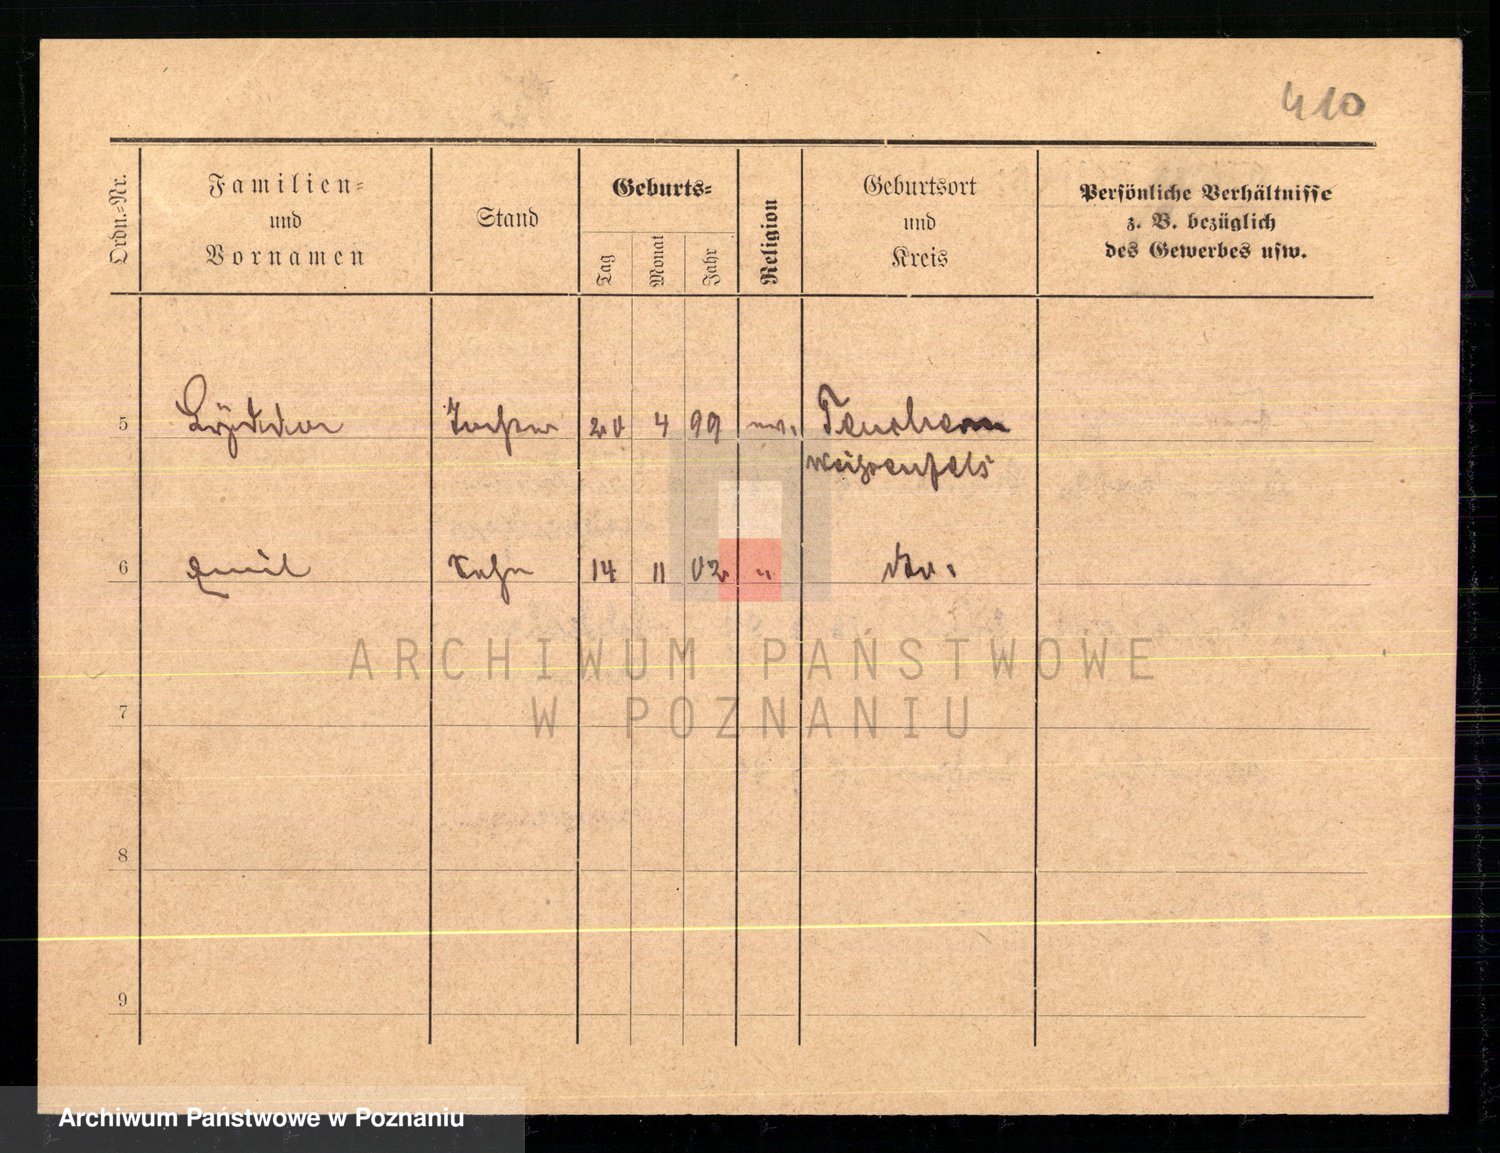 410
Ordn.-Nr.
Familien-
und
Vornamen
Stand
Geburts-
Tag
Monat
Jahr
Religion
Geburtsort
und
Kreis
Persönliche Verhältnisse
z. B. bezüglich
des Gewerbes usw.
5 Tochter 20 4 99 ev. Teuchern
Weißenfels
6 Emil Sohn 14 11 02 " do.
7
8
9
ARCHIWUM PAŃSTWOWE
W POZNANIU
Archiwum Państwowe w Poznaniu